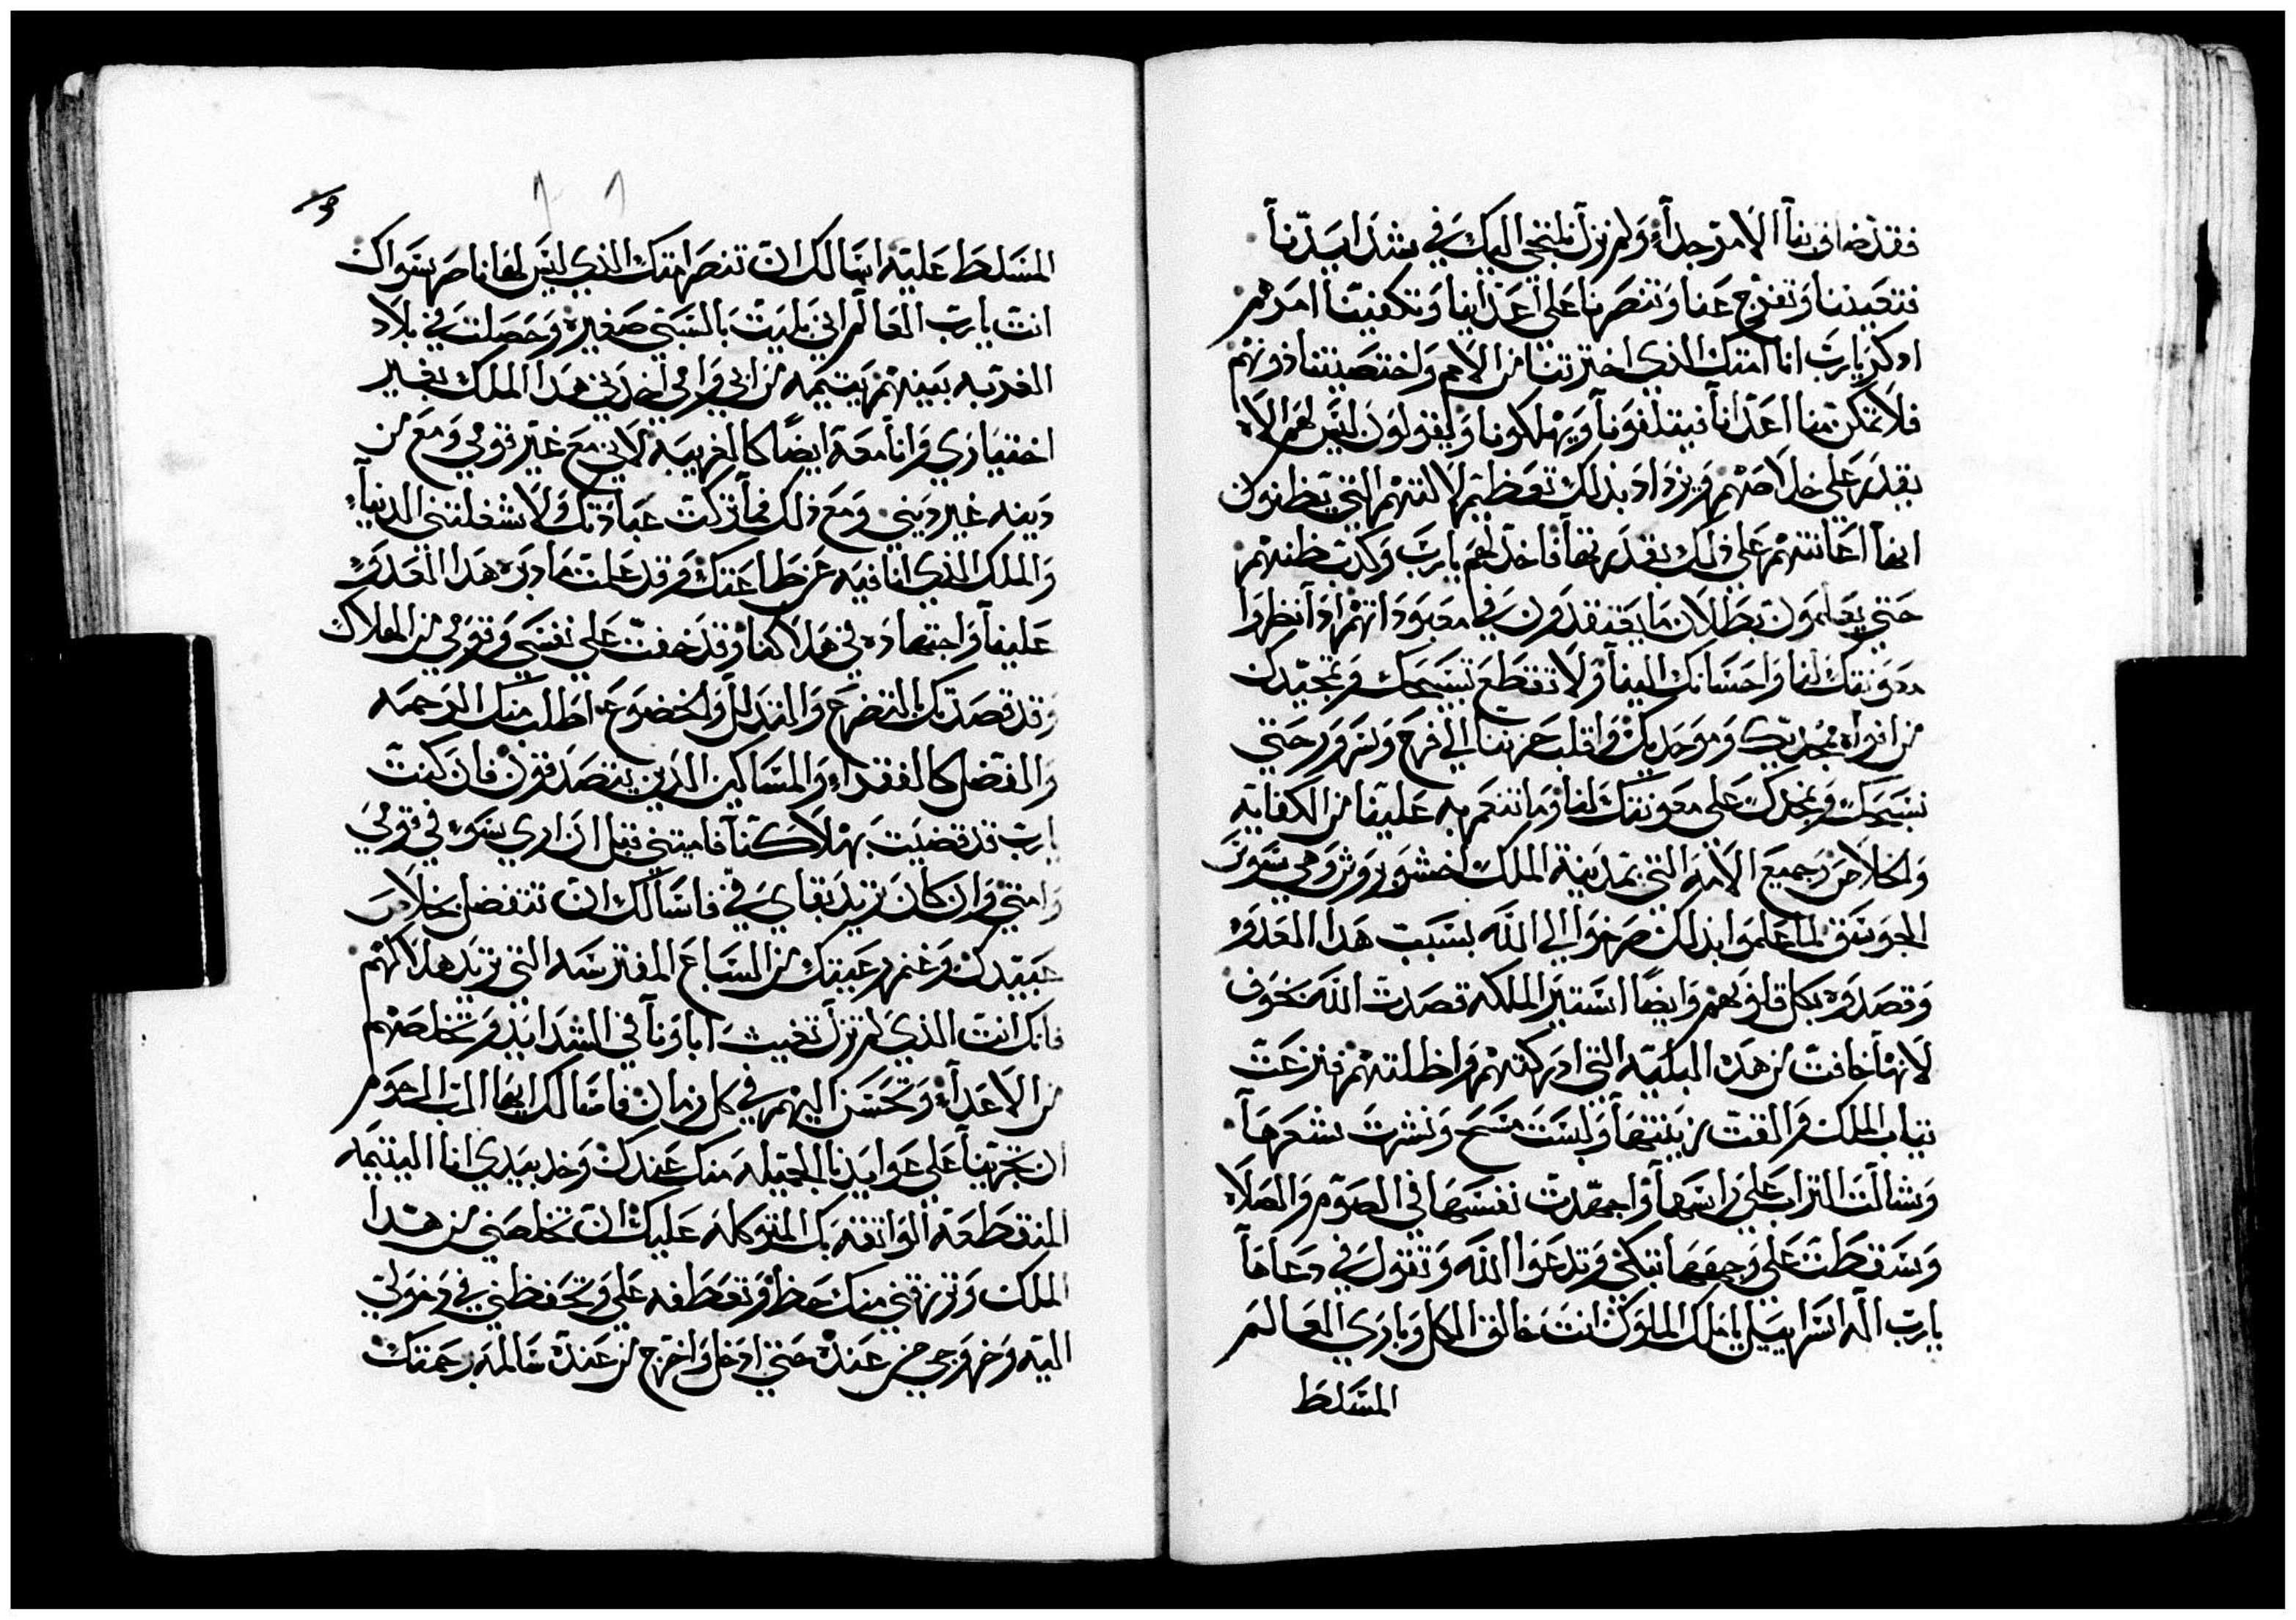 فقد ضاق بنا الامر جداً ولم نزل نلتجي اليك في شدايدنا
فتعيننا وتفرج عنا وتنصرنا على اعداينا وتكفينا امرهم
ادكر يارب انا امتك الذي اخترتنا من الامم واختصيتنا دونهم
فلا تمكن منا اعدانا فيتلفونا ويهلكونا ويقولون ليس لهم الاه
يقدر على خلاصهم ويزداد بذلك تعظيم الالهتهم التي يظنون
انها اعانتهم على ذلك بقدرتها فاخذلهم يارب وكدب ظنهم
حتي يعلمون بطلان ما يعتقدون في معبوداتهم ادا نظروا
معونتك لنا واحسانك الينا ولا تقطع تسبيحك وتمجيدك
من افواه مجديك وموحديك واقلب حزننا الي فرح وسرور حتي
نسبحك ونمجدك على معونتك لنا وما تنعم به علينا من الكفايه
والخلاص وجميع الامه التي بمدينة الملك اخشويروش وهي سوس
الجوسق لما علموا بذلك صرخوا الي الله بسبب هدا العدو
وقصدوه بكل قلوبهم وايضاً استير الملكه قصدت الله بخوف
لانها خافت من هده البليه التي ادركتهم واظلتهم فنزعت
تياب الملك والقت زينتها ولبست مسح ونشرت شعرها
وشالت التراب على راسها واجهدت نفسها في الصوم والصلاه
وسقطت على وجهها تبكي وتدعوا الله وتقول في دعاها
يارب اله اسراييل ياملك الملوك انت خالق الكل وباري العالم
المسلط
المسلط عليه اسالك ان تنصر امتك الذي ليس لها ناصر سواك
انت يارب العالم اني بليت بالسبي صغيره وحصلت في بلاد
الغربه بينهم يتيمه من ابي وامي اخدني هدا الملك بغير
اختياري وانا معه ايضاً كالغريبه لاني مع غير قومي ومع من
دينه غير ديني ومع ذلك فما تركت عبادتك ولا شغلتني الدنياء
والملك الذي انا فيه عن طاعتك وقد علمت ما دبره هدا العدو
علينا واجتهاده في هلاكنا وقد خفت على نفسي وقومي من الهلاك
وقد قصدتك بالتضرع والتدلل والخضوع اطلب منك الرحمه
والتفضل كالفقراء والمساكين الذين يتصدقون فان كنت
يارب قد قضيت بهلاكنا فاميتني قبل ان اري سوء في قومي
وامتي وان كان تريد بقاي في فاسالك ان تتفضل بخلاص
عبيدك وغنم رعيتك من السباع المفترسه التي تريد هلاكهم
فانك انت الذي لم تزل تغيث اباونا في الشدايد وتخلصهم
من الاعداء وتحسن اليهم في كل زمان فاسالك ايها الرب الرحوم
ان تجرينا على عوايدنا الجميله منك عندك وخد بيدي انا اليتيمه
المنقطعه الواتقه بك المتوكله عليك ان تخلصني من هدا
الملك وترزقني منك حظ وتعطفه علي وتحفظني في دخولي
اليه وخروجي من عنده حتي ادخل واخرج من عنده سالمه برحمتك